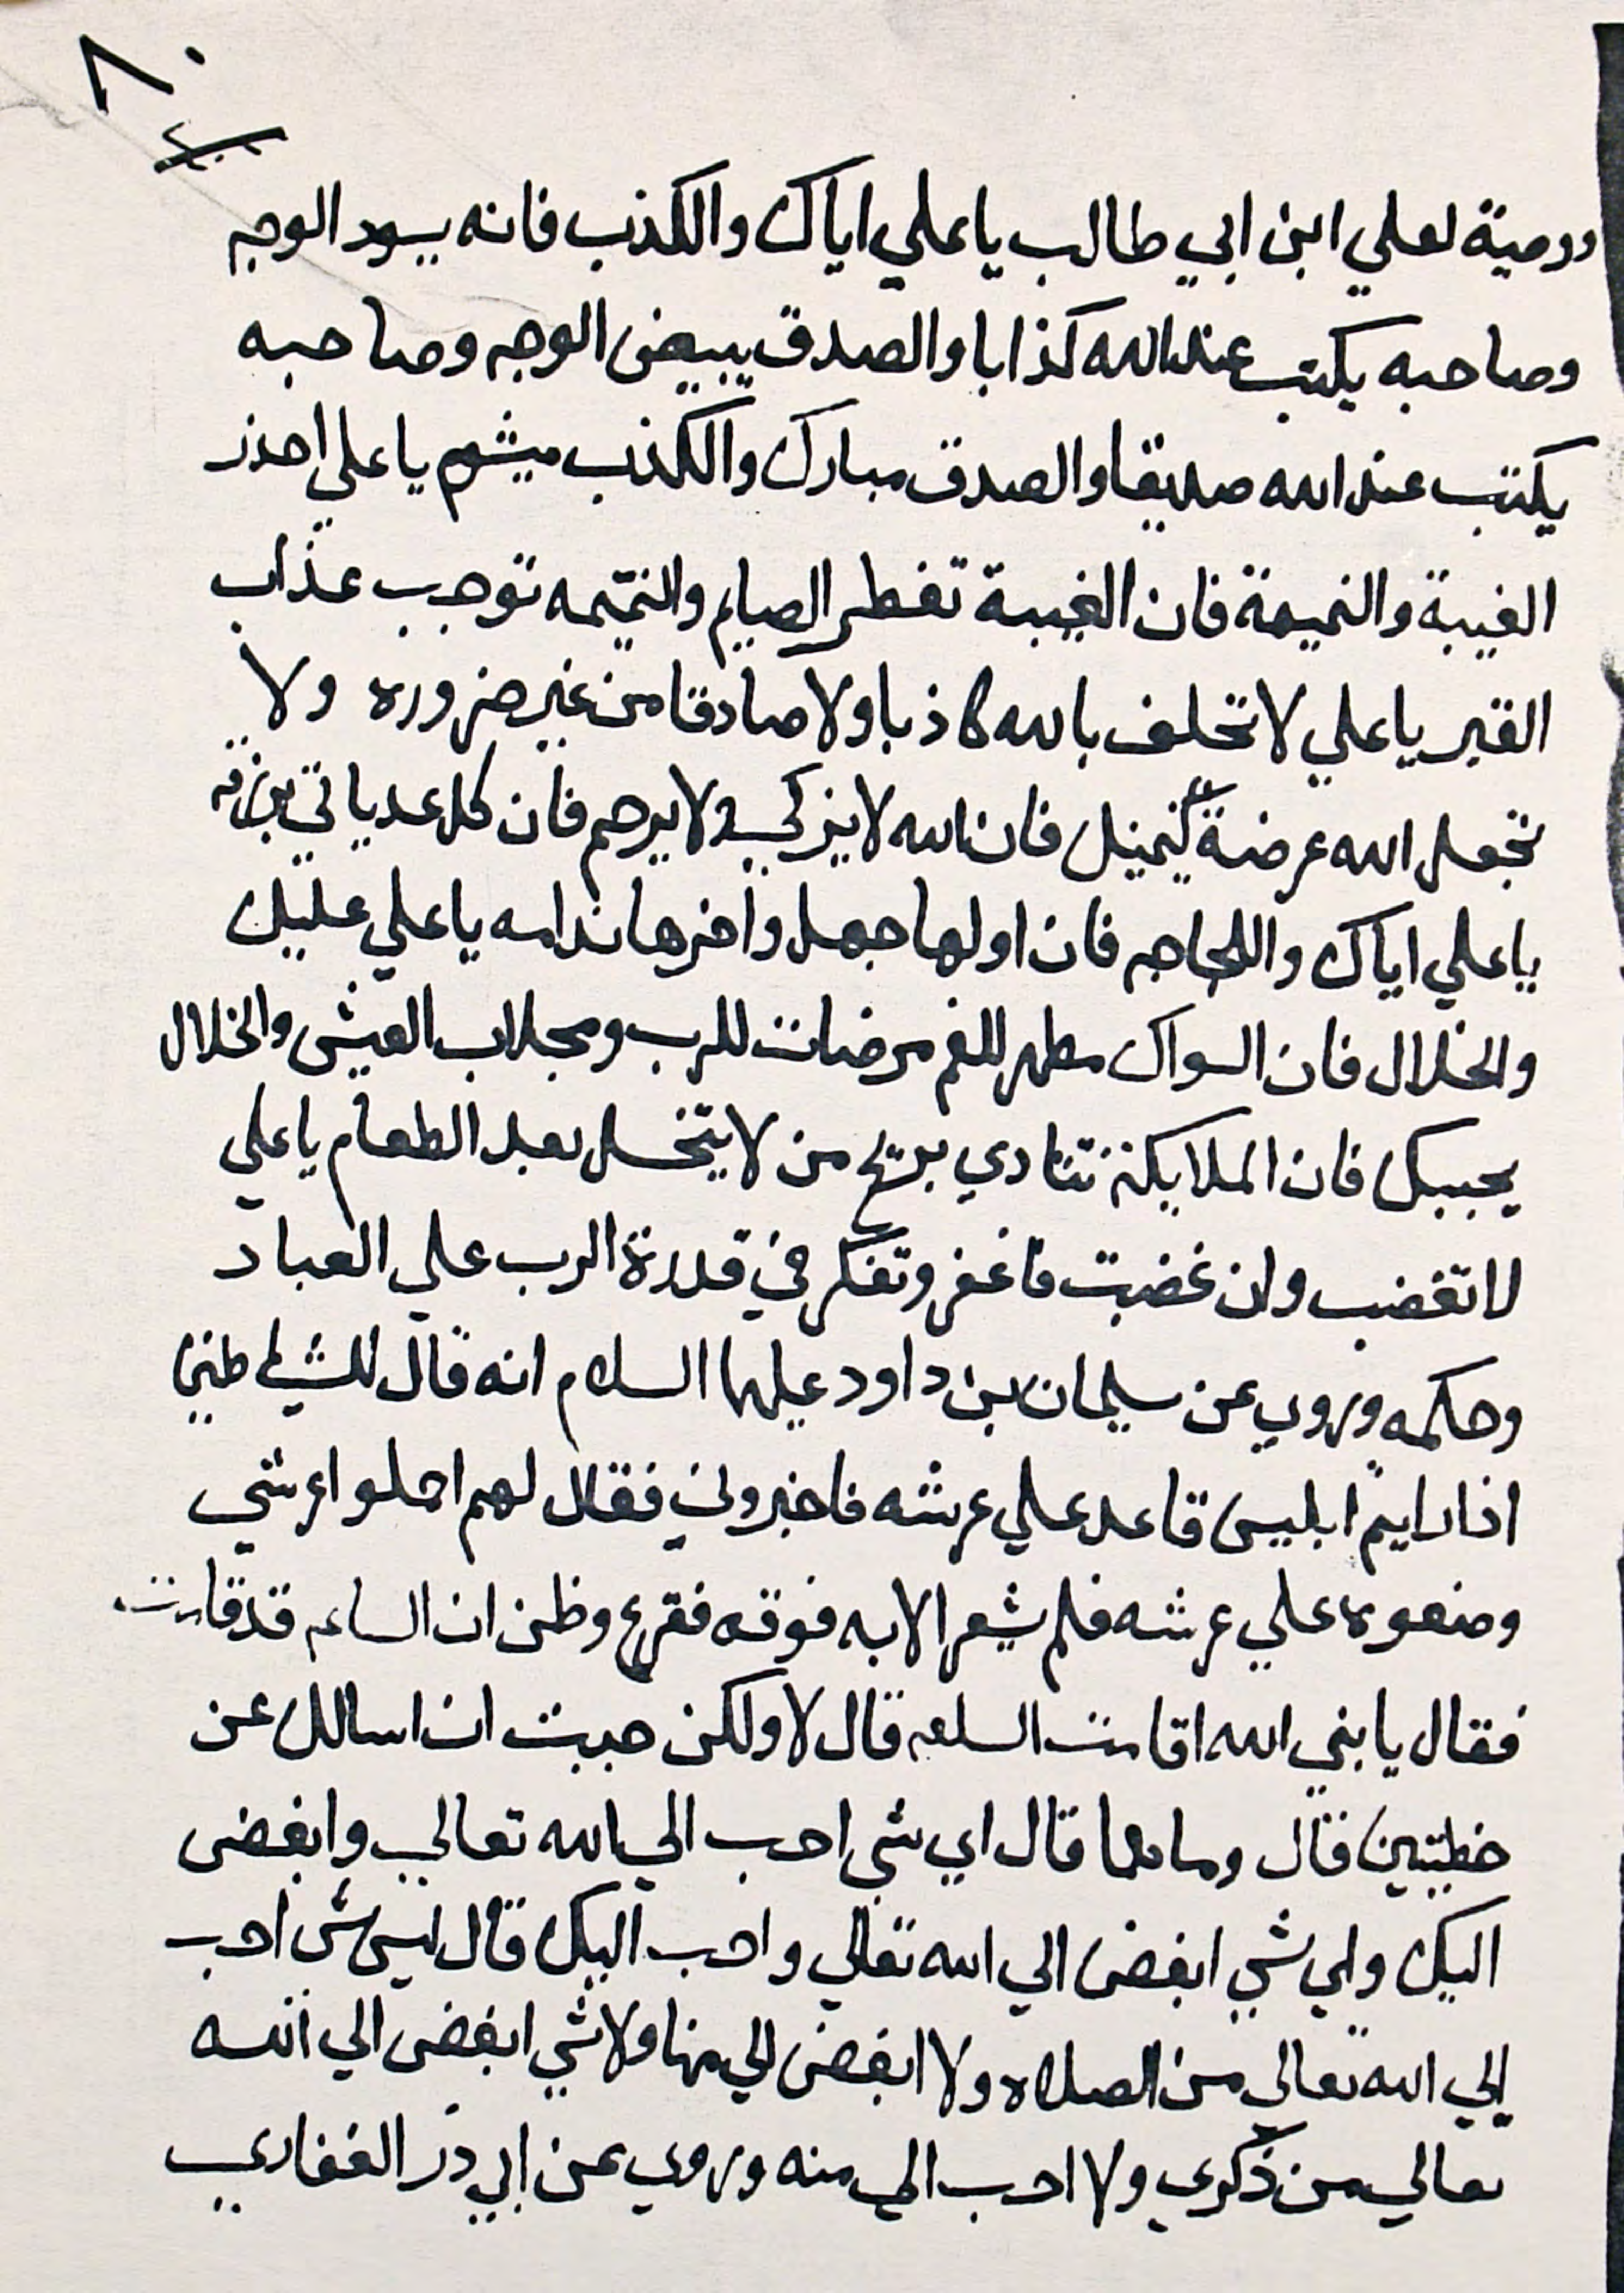 ٨٠
ووصية لعلي ابن ابي طالب يا علي اياك والكذب فانه يسود الوجه
وصاحبه يكتب عند الله كذابا والصدق يبيض الوجه وصاحبه
يكتب عند الله صديقا والصدق مبارك والكذب ميشوم يا علي احذر
الغيبة والنميمة فان الغيبة تفطر الصايم والنميمه توجب عذاب
القبر يا علي لا تحلف بالله كاذبا ولا صادقا من غير ضروره ولا
تجعل الله عرضة فان الله لا يزكي ولا يرحم فان كل غد ياتي برزقه
يا علي اياك واللجاجه فان اولها جهل واخرها ندامه يا علي عليك
والخلال فان السواك مطهر للفم مرضات للرب ومجلاب العيش والخلال
يحببك فان الملايكة تتنادي بريح من لا يتخلل بعد الطعام يا علي
لا تغضب وان غضبت فاغفر وتفكر في قدرة الرب علي العباد
وحكمه وروي عن سليمان بن داود عليهما السلام انه قال للشياطين
اذا رايتم ابليس قاعد علي عرشه فاخبروني فقال لهم احملوا عرشي
وضعوه علي عرشه فلم يشعر الا به فوقه ففزع وظن ان الساعه قد قامت
فقال يا نبي الله اقامت الساعه قال لا ولكن حببت ان اسالك عن
خطيتين قال وما هما قال اي شي احب الي الله تعالي وابغض
اليك واي شي ابغض الي الله تعالي واحب اليك قال ليس شي احب
الي الله تعالي من الصلاه ولا ابغض الي منها ولا شي ابغض الي الله
تعالي من ذكري ولا احب الي منه وروي عن ابي ذر الغفاري